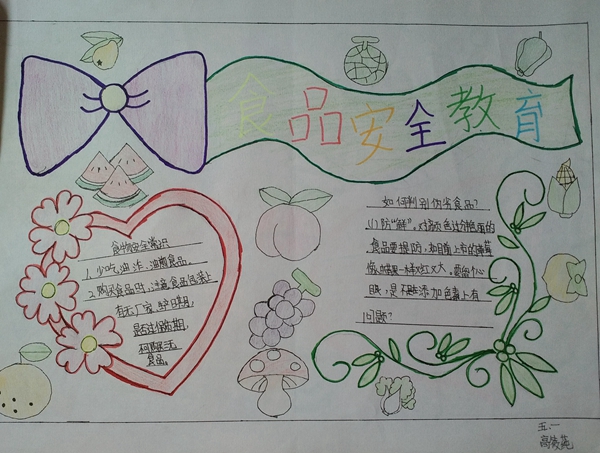 食品安全教育
食物安全常识
1、少吃油炸、油煎食品。
2、购买食品时,注意食品包装上
有无厂家,
是否过保质期,
食品。
如何判别伪劣食品?
(1)防“鲜”,对颜色过分艳丽的
食品要提防,如目前上有的草莓
像蜡果一样又红又大、要留个心
眼,是不是在添加色素上有
问题?
五.一